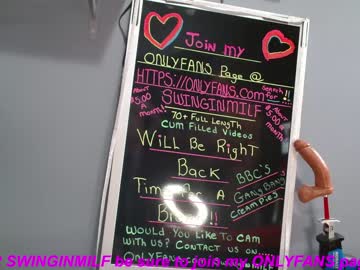 Join my
ONLYFANS Page @
HTTPS://ONLYFANS.com
Search for !!
SWINGINMILF
ABOUT $5.00 A MONTH!
ABOUT $5.00 A MONTH!
70+ Full Length
Cum Filled Videos
Will Be Right
Back
Time For A
BBC'S
GANGBANGS
CREAMPIES
WOULD YOU LIKE TO CAM
WITH US? CONTACT US ON
ONLYFANS
SWINGINMILF be sure to join my ONLYFANS